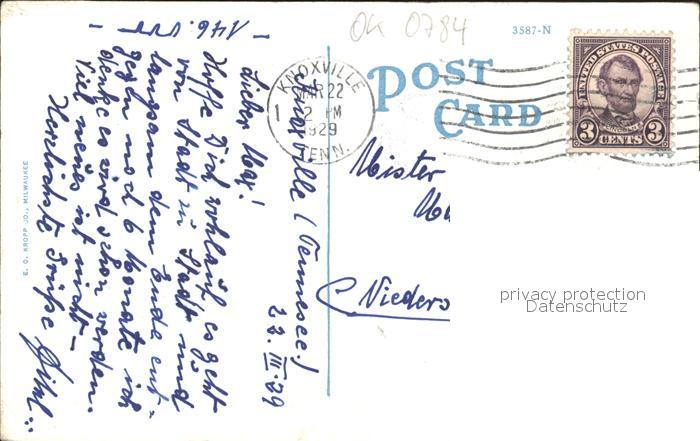 - 146. -
Knoxville (Tennessee)
22. III. 29
Lieber Max!
Hoffe Dich wohlauf, es geht
von Stadt zu Stadt und
langsam dem Ende ent-
gegen noch 6 Monate ich
denke es wird schon werden.
Viel neues ist nicht -
Herzlichste Grüße
OK 0784
3587-N
POST
CARD
KNOXVILLE
MAR 22
2 PM
1929
TENN.
1
UNITED STATES POSTAGE
LINCOLN
3 CENTS 3
Mister
Nieders
privacy protection
Datenschutz
E. C. KROPP CO., MILWAUKEE